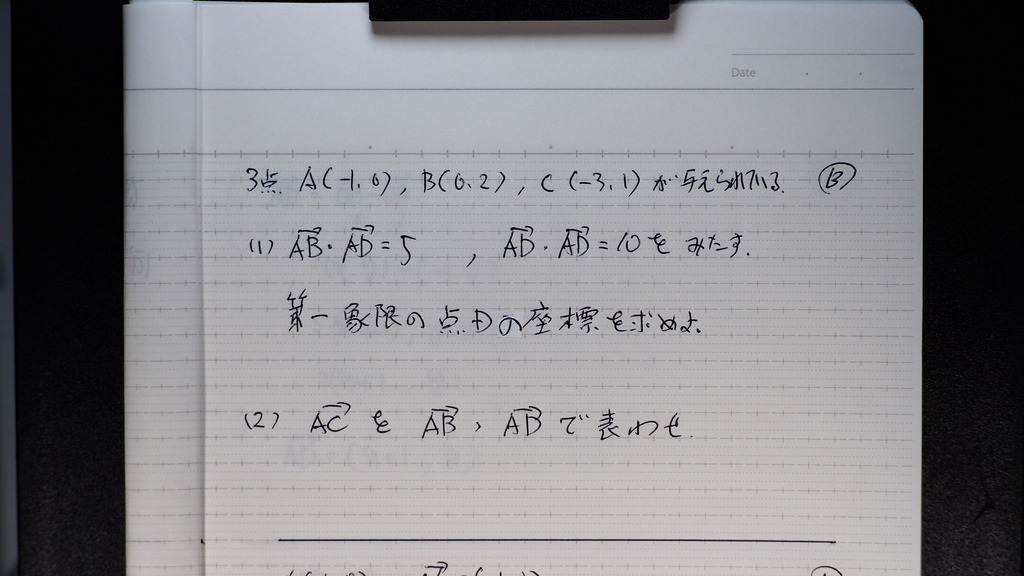 Date
3点 A(-1.0), B(0.2), C(-3.1)が与えられている. B
(1) AB・AD=5 , AD・AD=10をみたす.
第一象限の点Dの座標を求めよ.
(2) ACをAB, ADで表わせ.